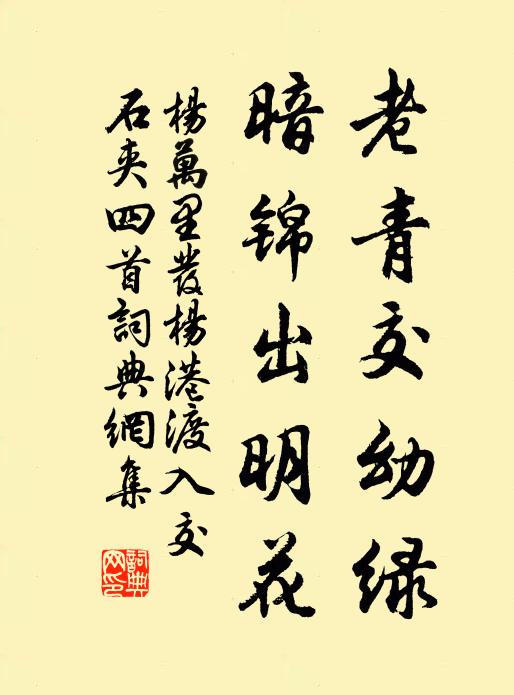 老青交幼绿
暗锦出明花
楊萬里發楊港渡入交
石夾四首詞典網集
詞典網印